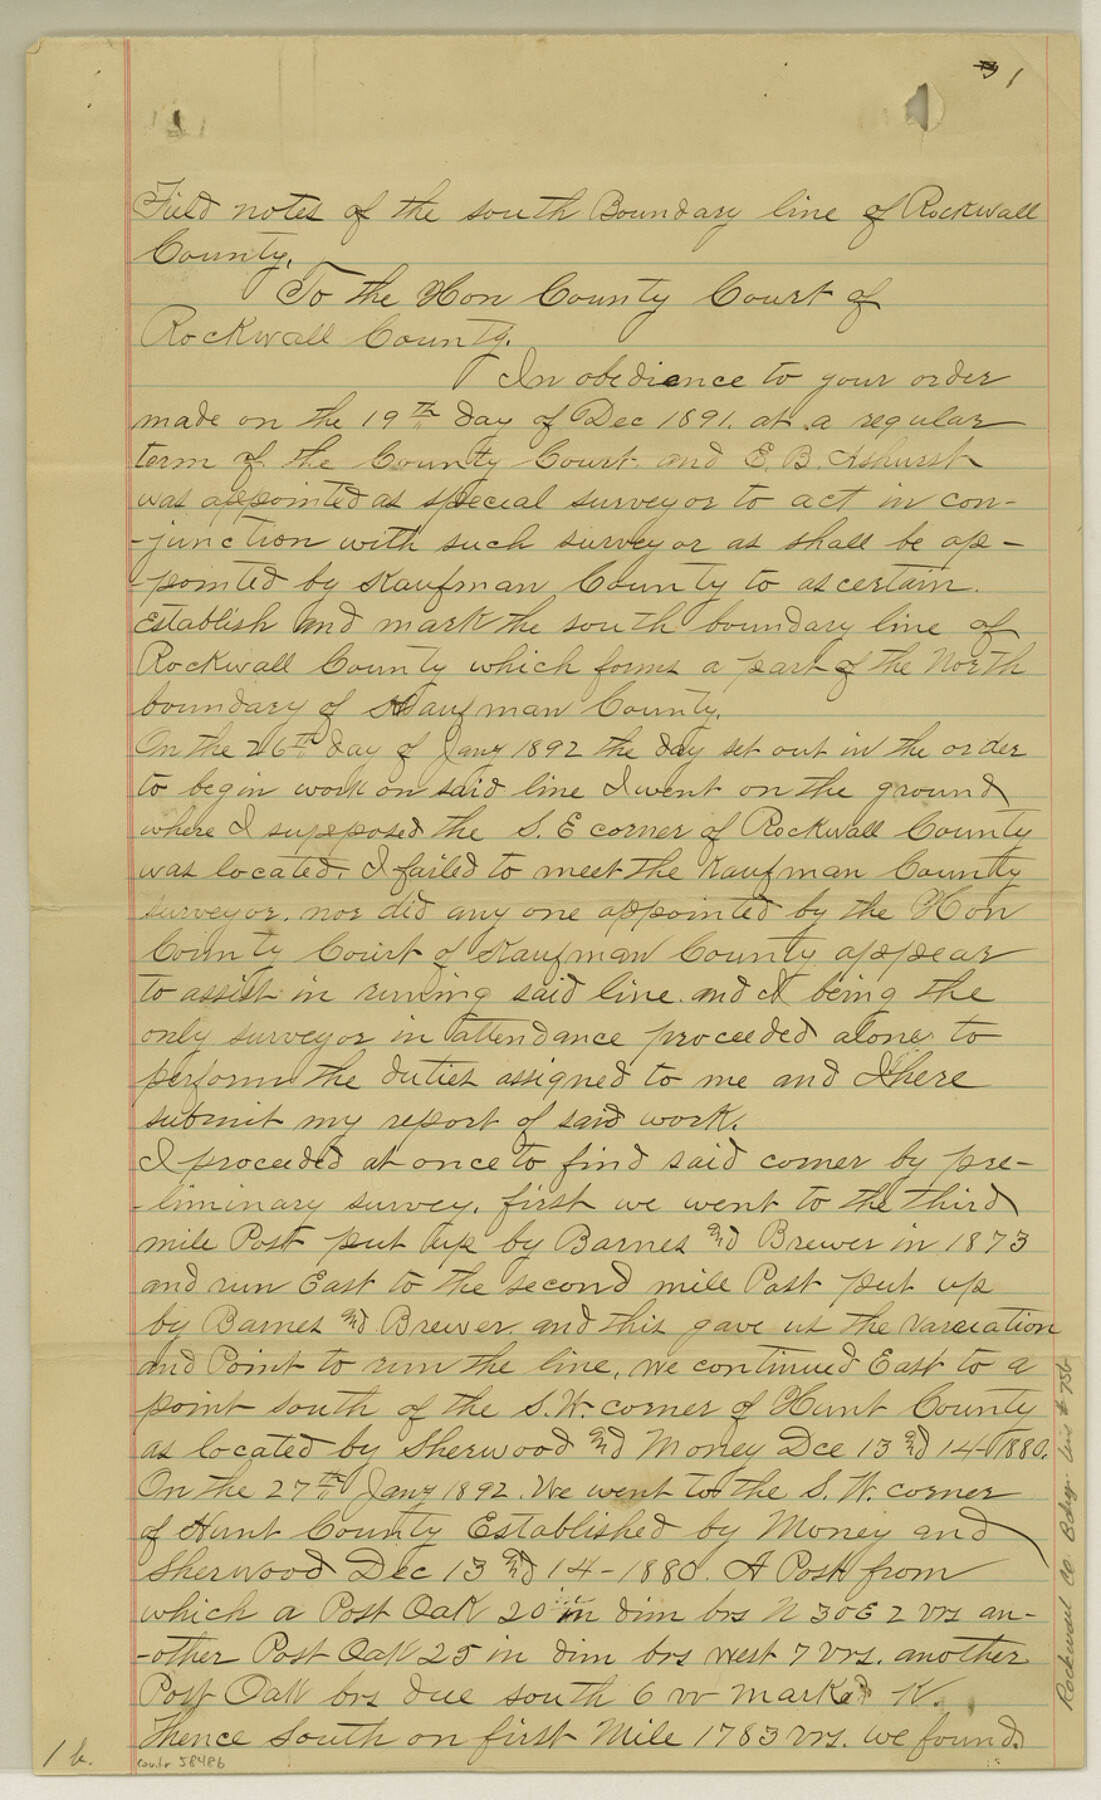 1
Field notes of the south Boundary line of Rockwall
County.
To the Hon County Court of
Rockwall County.
In obedience to your order
made on the 19th day of Dec 1891. at a regular
term of the County Court and E. B. Ashurst
was appointed as special surveyor to act in con-
-junction with such surveyor as shall be ap-
-pointed by Kaufman County to ascertain.
Establish and mark the south boundary line of
Rockwall County which forms a part of the North
boundary of Kaufman County.
On the 26th day of Jany 1892 the day set out in the order
to begin work on said line I went on the ground
where I supposed the S. E corner of Rockwall County
was located. I failed to meet the Kaufman County
surveyor. nor did any one appointed by the Hon
County Court of Kaufman County appear
to assist in runing said line. and I being the
only surveyor in attendance proceeded alone to
perform the duties assigned to me and I here
submit my report of said work.
I proceeded at once to find said corner by pre-
-liminary survey. first we went to the third
mile Post put up by Barnes and Brewer in 1873
and run East to the second mile Post put up
by Barnes and Brewer. and this gave us the varciation
and Point to run the line. we continued East to a
point south of the S.W. corner of Hunt County
as located by Sherwood and Money Dce 13 and 14-1880.
On the 27th Jany 1892. We went to the S. W. corner
of Hunt County Established by Money and
Sherwood Dec 13 and 14-1880. A Post from
which a Post Oak 20 in dim brs N 30 E 2 vrs an-
-other Post Oak 25 in dim brs west 7 vrs. another
Post Oak brs due south 6 vr marked K.
Thence South on first Mile 1783 vrs. we found.
counter 58486
Rockwall Co. Bdry. Line # 75b